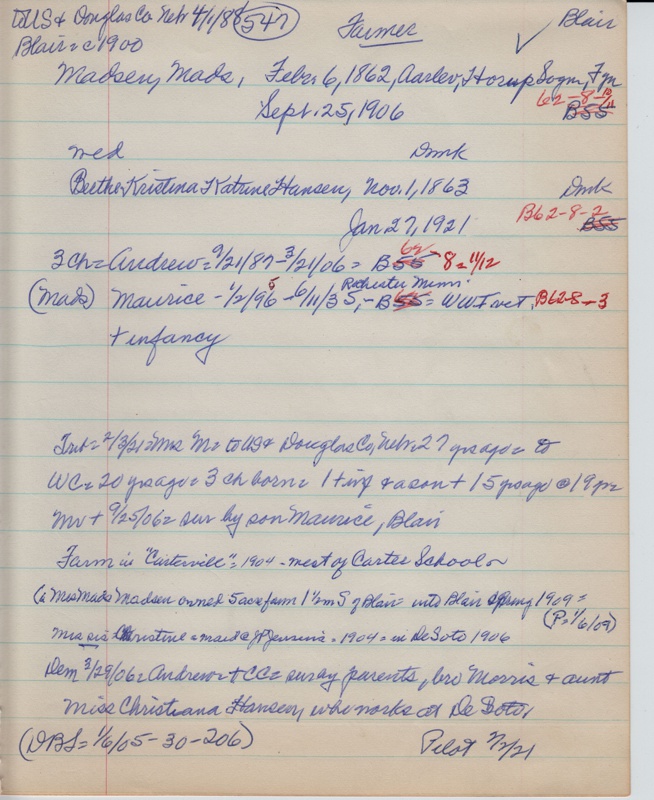 to US & Douglas Co Nebr 4/1/88 547 Farmer ✓ Blair
Blair = c1900
Madsen, Mads, Febr. 6, 1862, Aarlev, Horup Sogn, Fyn
Sept. 25, 1906 62-8- BSS
wed Dmk
Berthe Kristina Katrine Hansen, Nov. 1, 1863 Dmk
Jan 27, 1921 B62-8-2 BSS
3 ch = Andrew = 9/21/87 - 3/21/06 = BSS 62- 8 = 11/12
(Mads) Maurice - 1/2/96 5 - 6/11/35, Rochester Minn - BSS = WWI vet, B62-8-3
+ infancy
= 2/3/21 = Mrs M = to US & Douglas Co, Nebr. 27 yrs ago = to
WC = 20 yrs ago = 3 ch born = 1 + inf & a son + 15 yrs ago @ 19
Mr + 9/25/06 = sur by son Maurice, Blair
Farm in "Carterville" = 1904 - west of Carter School
Mrs Mads Madsen owned 5 acre farm 1 1/2 m S of Blair = into Blair spring 1909 =
(P = 1/6/09)
Mrs sis Christine = maid @ Jensens = 1904 = in DeSoto 1906
Dem 3/29/06 = Andrew = + CC = sur by parents, bro Morris & aunt
Miss Christiana Hansen, who works at De Soto
(DBS = 1/6/05 - 30 - 206) Pilot